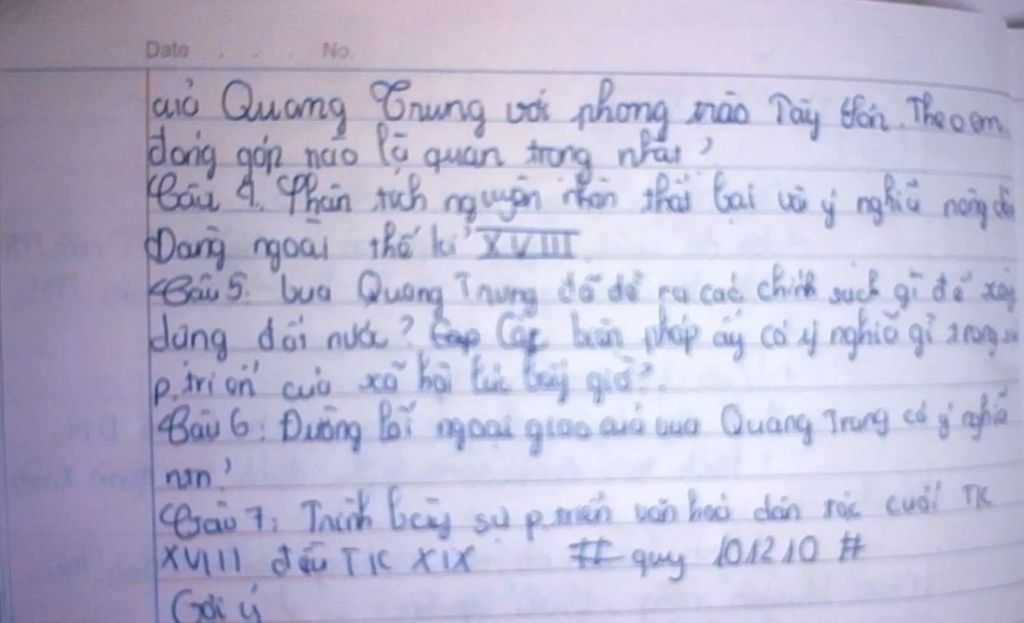 Date . . . . No.
của Quang Trung với phong trào Tây Sơn. Theo em
đóng góp nào là quan trọng nhất?
Câu 4. Phân tích nguyên nhân thất bại và ý nghĩa nông dân
Đàng ngoài thế kỉ XVIII
Câu 5. Vua Quang Trung đã đề ra các chính sách gì để xây
dựng đất nước? Các biện pháp ấy có ý nghĩa gì trong sự
p.triển của xã hội lúc bấy giờ?
Câu 6: Đường lối ngoại giao của vua Quang Trung có ý nghĩa
ntn?
Câu 7: Trình bày sự p.triển văn hoá dân tộc cuối TK
XVIII đầu TK XIX # quy 101210 #
Gợi ý